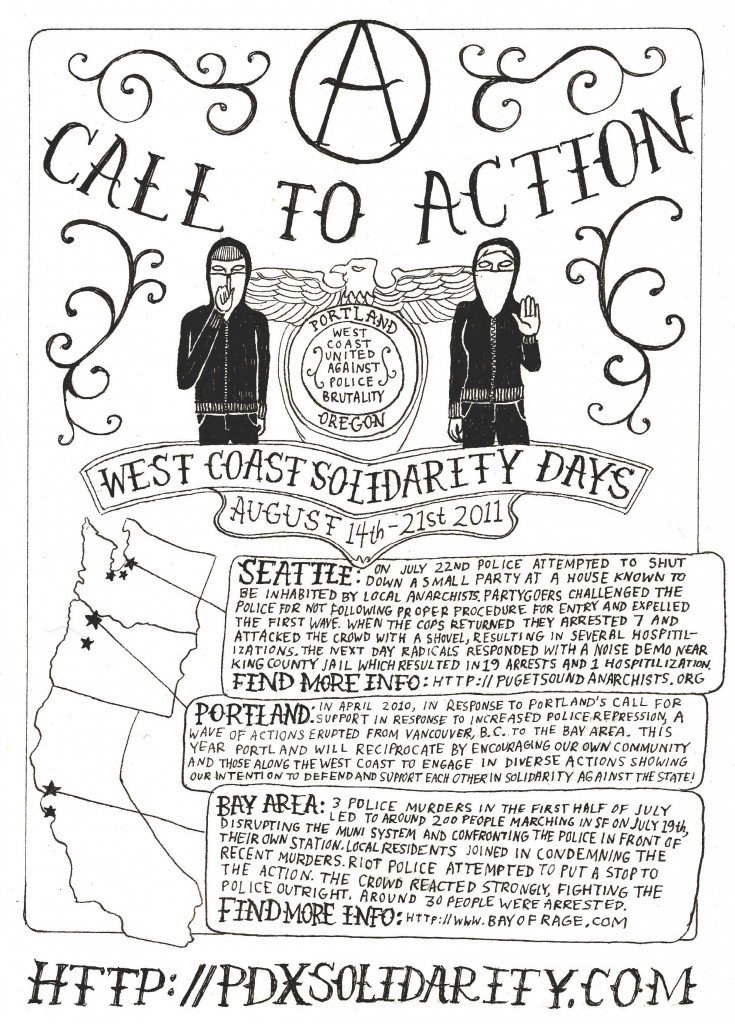 A
CALL TO ACTION
PORTLAND
WEST
COAST
UNITED
AGAINST
POLICE
BRUTALITY
OREGON
WEST COAST SOLIDARITY DAYS
AUGUST 14th-21st 2011
SEATTLE: ON JULY 22ND POLICE ATTEMPTED TO SHUT
DOWN A SMALL PARTY AT A HOUSE KNOWN TO
BE INHABITED BY LOCAL ANARCHISTS. PARTYGOERS CHALLENGED THE
POLICE FOR NOT FOLLOWING PROPER PROCEDURE FOR ENTRY AND EXPELLED
THE FIRST WAVE. WHEN THE COPS RETURNED THEY ARRESTED 7 AND
ATTACKED THE CROWD WITH A SHOVEL, RESULTING IN SEVERAL HOSPITIL-
IZATIONS. THE NEXT DAY RADICALS RESPONDED WITH A NOISE DEMO NEAR
KING COUNTY JAIL WHICH RESULTED IN 19 ARRESTS AND 1 HOSPITILIZATION.
FIND MORE INFO: HTTP://PUGETSOUNDANARCHISTS.ORG
PORTLAND: IN APRIL 2010, IN RESPONSE TO PORTLAND'S CALL FOR
SUPPORT IN RESPONSE TO INCREASED POLICE REPRESSION, A
WAVE OF ACTIONS ERUPTED FROM VANCOUVER, B.C. TO THE BAY AREA. THIS
YEAR PORTLAND WILL RECIPROCATE BY ENCOURAGING OUR OWN COMMUNITY
AND THOSE ALONG THE WEST COAST TO ENGAGE IN DIVERSE ACTIONS SHOWING
OUR INTENTION TO DEFEND AND SUPPORT EACH OTHER IN SOLIDARITY AGAINST THE STATE!
BAY AREA: 3 POLICE MURDERS IN THE FIRST HALF OF JULY
LED TO AROUND 200 PEOPLE MARCHING IN SF ON JULY 19th,
DISRUPTING THE MUNI SYSTEM AND CONFRONTING THE POLICE IN FRONT OF
THEIR OWN STATION. LOCAL RESIDENTS JOINED IN CONDEMNING THE
RECENT MURDERS. RIOT POLICE ATTEMPTED TO PUT A STOP TO
THE ACTION. THE CROWD REACTED STRONGLY, FIGHTING THE
POLICE OUTRIGHT. AROUND 30 PEOPLE WERE ARRESTED.
FIND MORE INFO: HTTP://WWW.BAYOFRAGE.COM
HTTP://PDXSOLIDARITY.COM